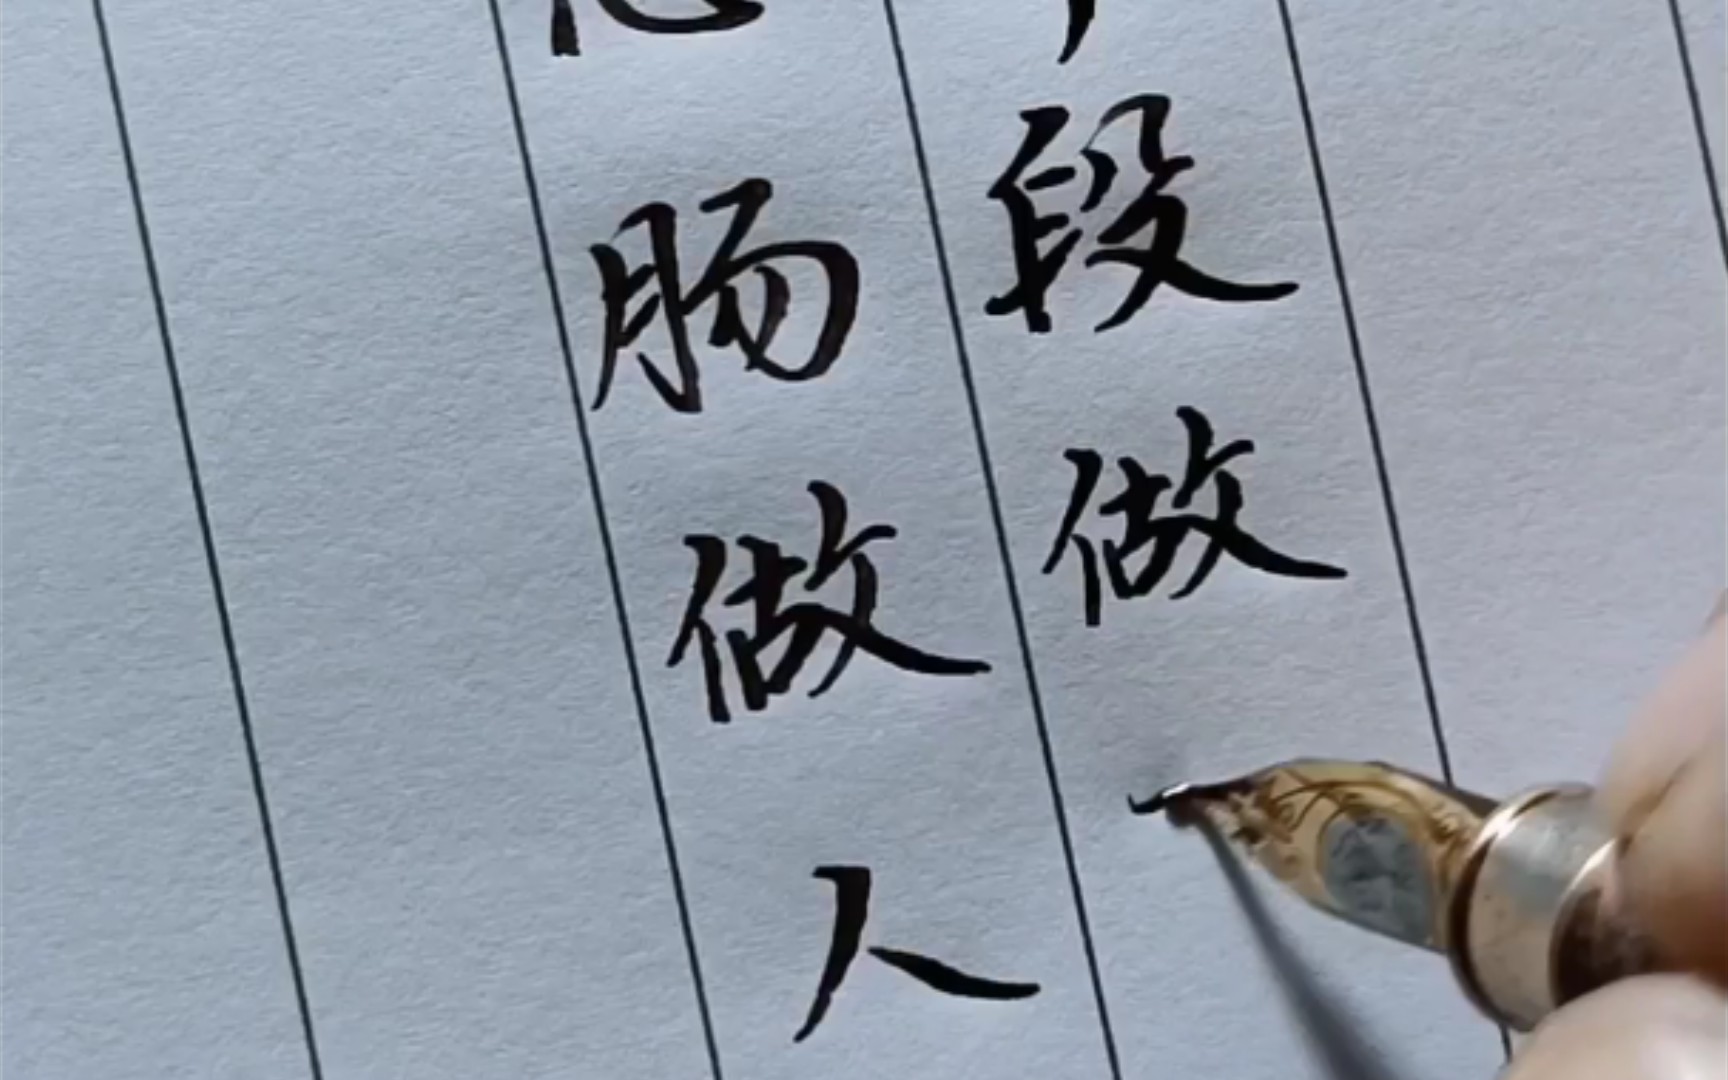 段做
肠做人